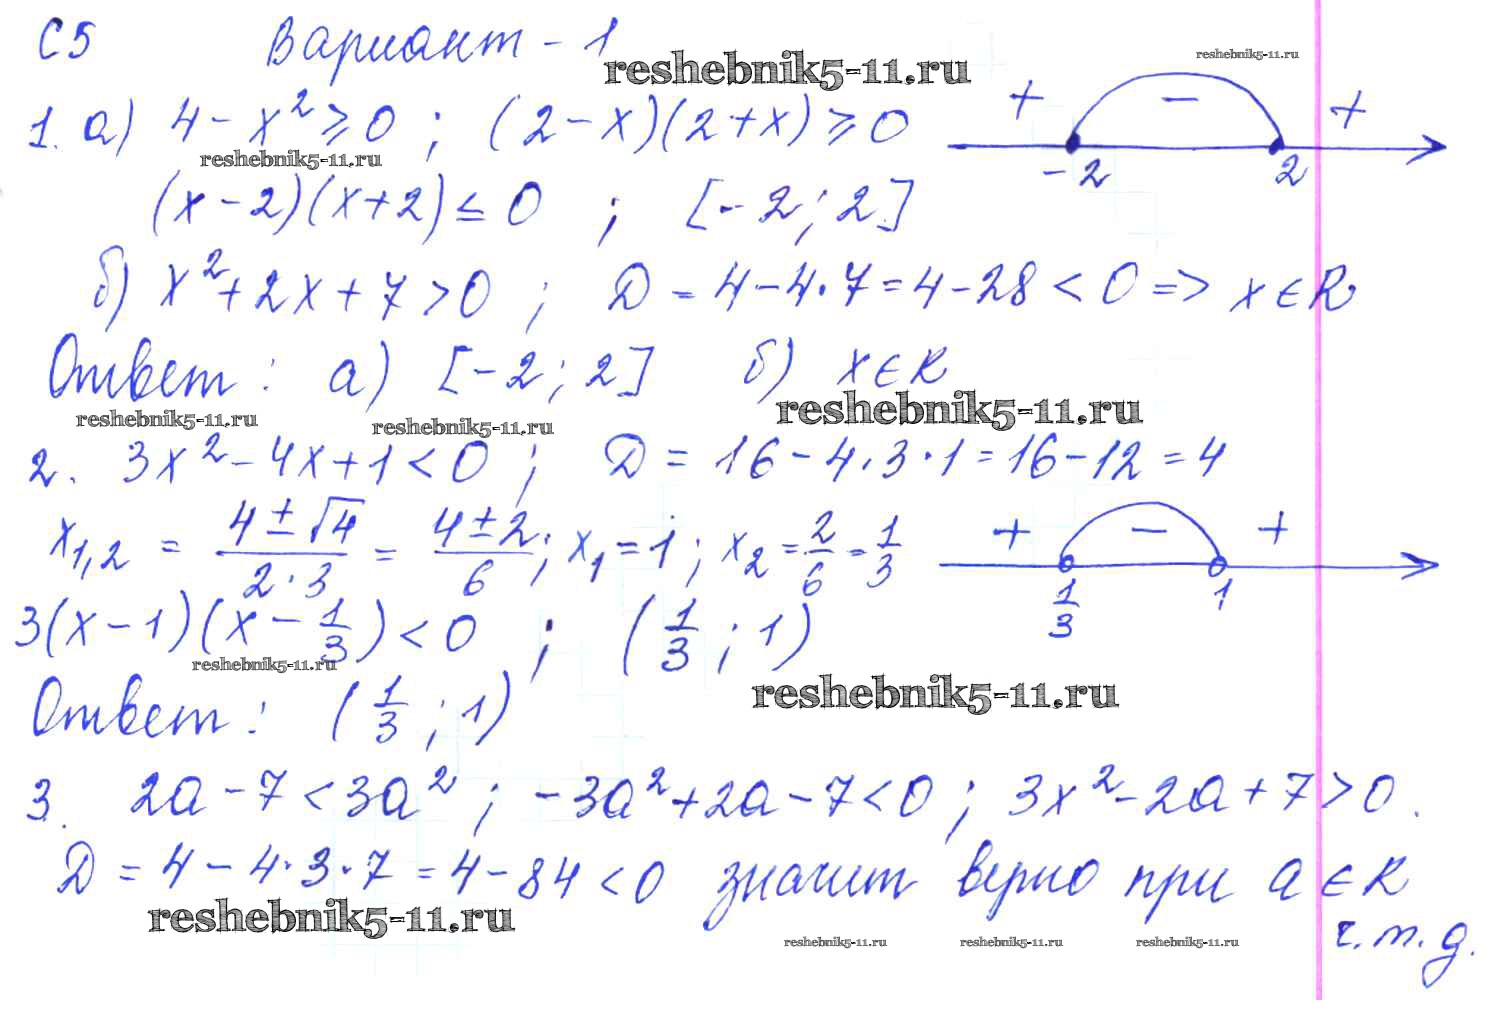 С5 Вариант - 1
reshebnik5-11.ru
reshebnik5-11.ru
1. а) 4 - x² ≥ 0 ; (2 - x)(2 + x) ≥ 0
+ - +
-2 2
reshebnik5-11.ru
(x - 2)(x + 2) ≤ 0 ; [-2; 2]
б) x² + 2x + 7 > 0 ; D = 4 - 4·7 = 4 - 28 < 0 => x ∈ R
Ответ: а) [-2; 2] б) x ∈ R
reshebnik5-11.ru
reshebnik5-11.ru
reshebnik5-11.ru
2. 3x² - 4x + 1 < 0 ; D = 16 - 4·3·1 = 16 - 12 = 4
x₁,₂ = (4 ± √4)/(2·3) = (4 ± 2)/6 ; x₁ = 1 ; x₂ = 2/6 = 1/3
+ - +
1/3 1
3(x - 1)(x - 1/3) < 0 ; (1/3 ; 1)
reshebnik5-11.ru
reshebnik5-11.ru
Ответ: (1/3 ; 1)
3. 2a - 7 < 3a² ; -3a² + 2a - 7 < 0 ; 3x² - 2a + 7 > 0.
D = 4 - 4·3·7 = 4 - 84 < 0 значит верно при a ∈ R
reshebnik5-11.ru
ч.т.д.
reshebnik5-11.ru reshebnik5-11.ru reshebnik5-11.ru